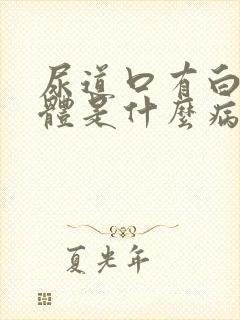 尿道口有白
體是什麼病
夏光年